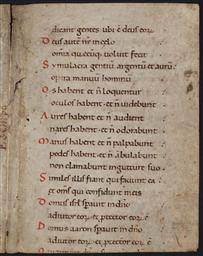 dicant gentes ubi ē deus eor
Deus autē nr̄ in celo
omia quecūq; voluit fecit
Simulacra gentiū argentū et aurū
opera manuū hominū
Os habent et n̄ loquentur
oculos habent et n̄ videbunt
Aures habent et n̄ audient
nares habent et n̄ odorabunt
Manus habent et n̄ palpabunt
pedes habent et n̄ ābulabunt
non clamabunt in gutture suo
Similes illis fiant qui faciunt ea
et om̄s qui confidunt in eis
Domus isrl̄ speravit in dn̄o
adiutor eor et ptector eor ē
Domus aaron speravit in dn̄o
adiutor eor et ptector eor ē